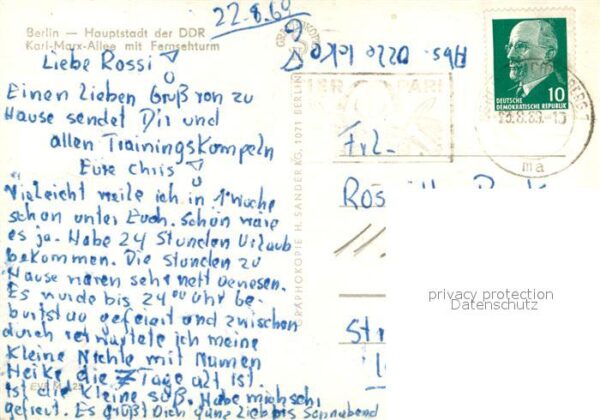 22.8.69
Berlin — Hauptstadt der DDR
Karl-Marx-Allee mit Fernsehturm
Liebe Rossi!
Einen Lieben Gruß von zu
Hause sendet Dir und
allen Trainingskompeln
Eure Chris!
Vieleicht weile ich in 1 Woche
schon unter Euch. Schön wäre
es ja. Habe 24 Stunden Urlaub
bekommen. Die Stunden zu
Hause waren sehr nett gewesen.
Es wurde bis 24⁰⁰ Uhr Ge-
burtstag gefeiert und zwischen
durch verwaltete ich meine
Kleine Nichte mit Namen
Heike die 7 Tage alt ist.
Ist die Kleine süß. Habe mich sehr
gefreut. Es grüßt Dich ganz Lieb bis Sonnabend
GRAPHOKOPIE H. SANDER KG, 1071 BERLIN
Abs. 0220
10
DEUTSCHE
DEMOKRATISCHE REPUBLIK
ma
Frl.
Ros
11.
St
privacy protection
Datenschutz